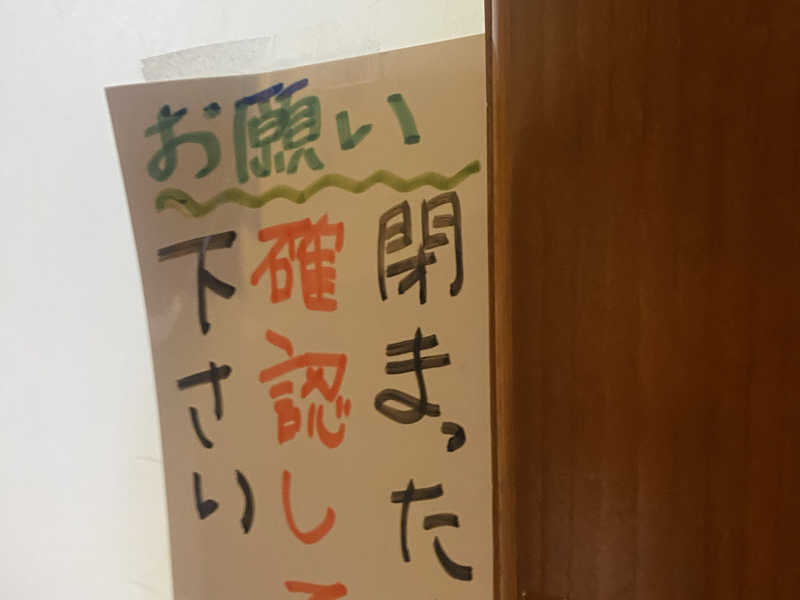 お願い
閉まった
確認して
下さい